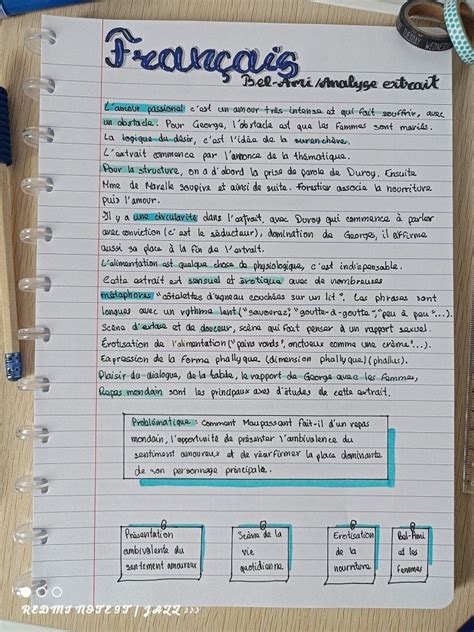 Français
Bel-Ami/Analyse extrait
L'amour passionel c'est un amour très intense et qui fait souffrir, avec
un obstacle. Pour George, l'obstacle est que les femmes sont mariés.
La logique du désir, c'est l'idée de la surenchère.
L'extrait commence par l'annonce de la thématique.
Pour la structure, on a d'abord la prise de parole de Duroy. Ensuite
Mme de Marelle soupire et ainsi de suite. Forestier associe la nourriture
puis l'amour.
Il y a une circularité dans l'extrait, avec Duroy qui commence à parler
avec conviction (c'est le séducteur), domination de George, il affirme
aussi sa place à la fin de l'extrait.
L'alimentation est quelque chose de physiologique, c'est indispensable.
Cette extrait est sensuel et érotique avec de nombreuses
métaphores "côtelettes d'agneau couchées sur un lit". Les phrases sont
longues avec un rythme lent ("savourez", "goutte-à-goutte", "peu à peu"...).
Scène d'extase et de douceur, scène qui fait penser à un rapport sexuel.
Érotisation de l'alimentation ("pains ronds", onctueux comme une crème"...).
Expression de la forme phallyque (dimension phallyque) (phallus).
Plaisir du dialogue, de la table, le rapport de George avec les femmes,
Repas mondain sont les principaux axes d'études de cette extrait.
Problématique : Comment Maupassant fait-il d'un repas
mondain, l'opportunité de présenter l'ambivalence du
sentiment amoureux et de réarfirmer la place dominante
de son personnage principale.
Présentation
ambivalente du
sentement amoureux
Scène de la
vie
quotidienne
Erotisation
de la
nourriture
Bel-Ami
et les
femmes
REDMI NOTE 9T | JAZZ >>>